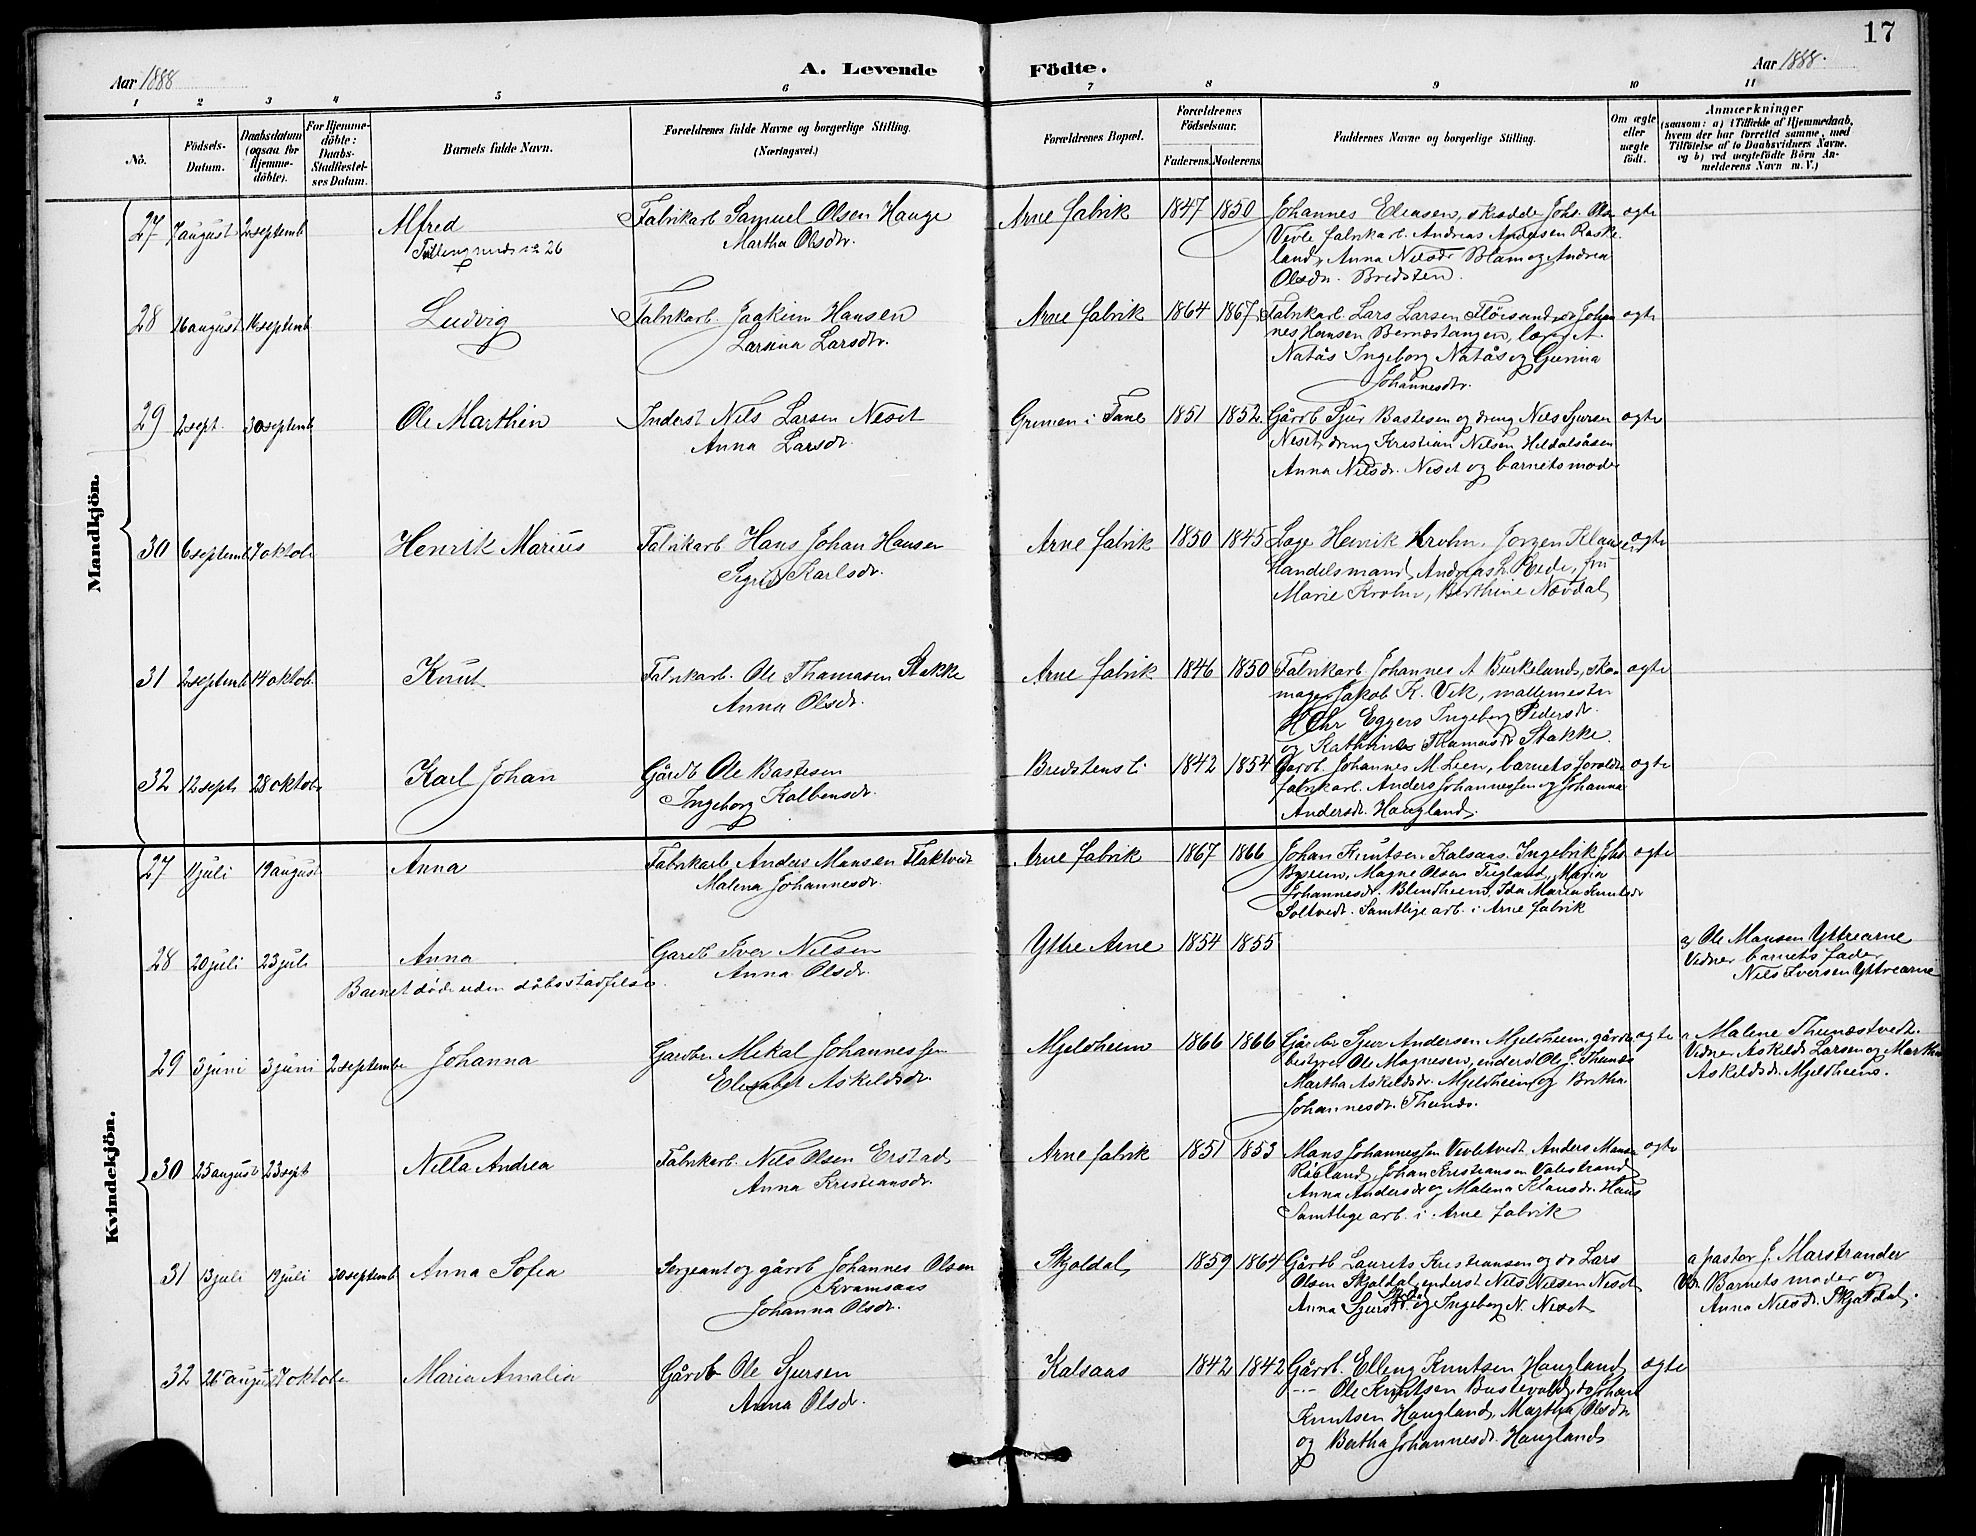 17
Aar 1888
A. Levende Födte.
Aar 1888.
1 2 3 4 5 6 7 8 9 10 11
No.
Födsels-
Datum.
Daabsdatum
(ogsaa for
Hjemme-
döbte).
For Hjemme-
döbte:
Daabs-
Stadfæstel-
ses Datum.
Barnets fulde Navn.
Forældrenes fulde Navne og borgerlige Stilling.
(Næringsvei.)
Forældrenes Bopæl.
Forældrenes
Födselsaar.
Faderens. Moderens.
Faddernes Navne og borgerlige Stilling.
Om ægte
eller
uægte
födt.
Anmærkninger
(saasom: a) i Tilfælde af Hjemmedaab,
hvem der har forrettet samme, med
Tilföielse af to Daabsvidners Navne.
og b) ved uægtefödte Börn An-
melderens Navn m. V.)
Mandkjön.
27 7 august 2 septemb Alfred
Fabrikarb Samuel Olsen Hauge
Martha Olsdr.
Arne fabrik 1847 1850
Johannes Eliasen, Johs. Ols
fabrikarb. Andreas Andersen Raske
land, Anna Nilsdr og Andrea
Olsdr. Bredsten.
ægte
28 16 august 16 septemb Ludvig
Fabrikarb. Joakim Hansen
Larsina Larsdr.
Arne fabrik 1864 1867
Fabrikarb Lars Larsen Johan
nes Hansen lærer A.
Natås Ingeborg Natås og Gurina
Johannesdr.
ægte
29 2 sept. 30 septemb Ole Marthin
Inderst Nils Larsen Neset
Anna Larsdr.
Grimen i Fane 1851 1852
Gårdb Sjur Bastesen og dreng Nils Sjursen
Neset, dreng Kristian Nilsen Heldalsåsen
Anna Nilsdr. Neset og barnets moder
ægte
30 6 septemb 7 oktob Henrik Marius
Fabrikarb Hans Johan Hansen
Sigrid Karlsdr.
Arne fabrik 1850 1845
Læge Henrik Krohn, Jørgen Klausen
Handelsmand, Andreas L. Rede, fru
Marie Krohn, Berthine Nævdal
ægte
31 2 septemb 14 oktob. Knut
Fabrikarb. Ole Thomasen Stakke
Anna Olsdr.
Arne fabrik 1846 1850
Fabrikarb Johannes A Birkeland, sko-
mager Jakob K. Vik, mallemester
H Chr Eggers Ingeborg Pedersdr.
og Kathrine Thomasdr Stakke.
ægte
32 12 sept 28 oktob Karl Johan
Gårdb Ole Bastesen
Ingeborg Kolbensdr.
Bredstensli 1842 1854
Gårdb Johannes M Lien, barnets foreldre
fabrikarb. Anders Johannessen og Johanna
Andersdr. Haugland.
ægte
Kvindekjön.
27 11 juli 19 august Anna
Fabrikarb Anders Monsen Flaktvedt
Malena Johannesdr.
Arne fabrik 1867 1866
Johan Knutsen Kalsaas. Ingebrik Johs.
Magne Olsen Maria
Johannesdr. Blindheim, Ida Maria Knutsdr
Soltvedt. Samtlige arb. i Arne fabrik
ægte
28 20 juli 23 juli Anna
Barnet døde uden dåbsstadfestelse.
Gardb Iver Nilsen
Anna Olsdr.
Yttre Arne 1854 1855
a/ Ole Monsen Yttrearne
Vidner barnets fader
Nils Iversen Yttrearne
29 3 juni 3 juni 2 september Johanna
Gardbr. Mikal Johannessen
Elisabet Askildsdr.
Mjeldheim 1866 1866
Gårdbr Sjur Andersen Mjeldheim, gårds-
bestyrer Ole Magnesen, enderst Ole S. Thunæs
Martha Askildsdr. Mjeldheim og Britha
Johannesdr. Thunæs.
ægte
a Malene Thunæstvedt.
Vidner Askild Larsen og Martha
Askildsdr. Mjeldheim.
30 25 august 23 sept Nilla Andrea
Fabrikarb. Nils Olsen Erstad
Anna Kristiansdr.
Arne fabrik 1851 1853
Mons Johannessen Anders Monsen
Johan Kristiansen Valestrand
Anna Andersdr og Malena Klausdr. Haus
Samtlige arb. i Arne fabrik
ægte
31 13 juli 19 juli 30 septemb Anna Sofia
Sergeant og gårdb Johannes Olsen
Kvamsaas
Johanna Olsdr.
Skjoldal 1859 1864
Gårdb Laurits Kristiansen og do Lars
Olsen Skjoldal, enderst Nils Nilsen Neset
Anna Sjursdr. og Ingeborg N. Neset
a pastor J. Marstrander
Vdn Barnets moder og
Anna Nilsdr. Skjoldal.
32 26 august 7 oktob Maria Amalia
Gårdb Ole Sjursen
Anna Olsdr.
Kalsaas 1842 1842
Gårdb. Elling Knutsen Haugland
-- Ole Knutsen do Johan
Knutsen Haugland, Martha Olsdr.
og Bertha Johannesdr. Haugland
ægte